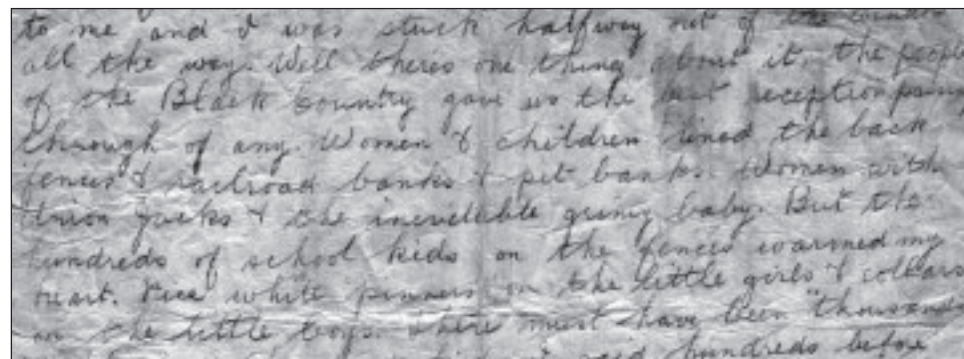 to me and I was stuck halfway out of the window
all the way. Well there's one thing about it, the people
of the Black Country gave us the best reception passing
through of any. Women & children lined the back
fences & railroad banks & pit banks. Women with
Union Jacks & the inevitable grimy baby. But the
hundreds of school kids on the fences warmed my
heart. Nice white pinners on the little girls & collars
on the little boys. There must have been "thousands
said hundreds before